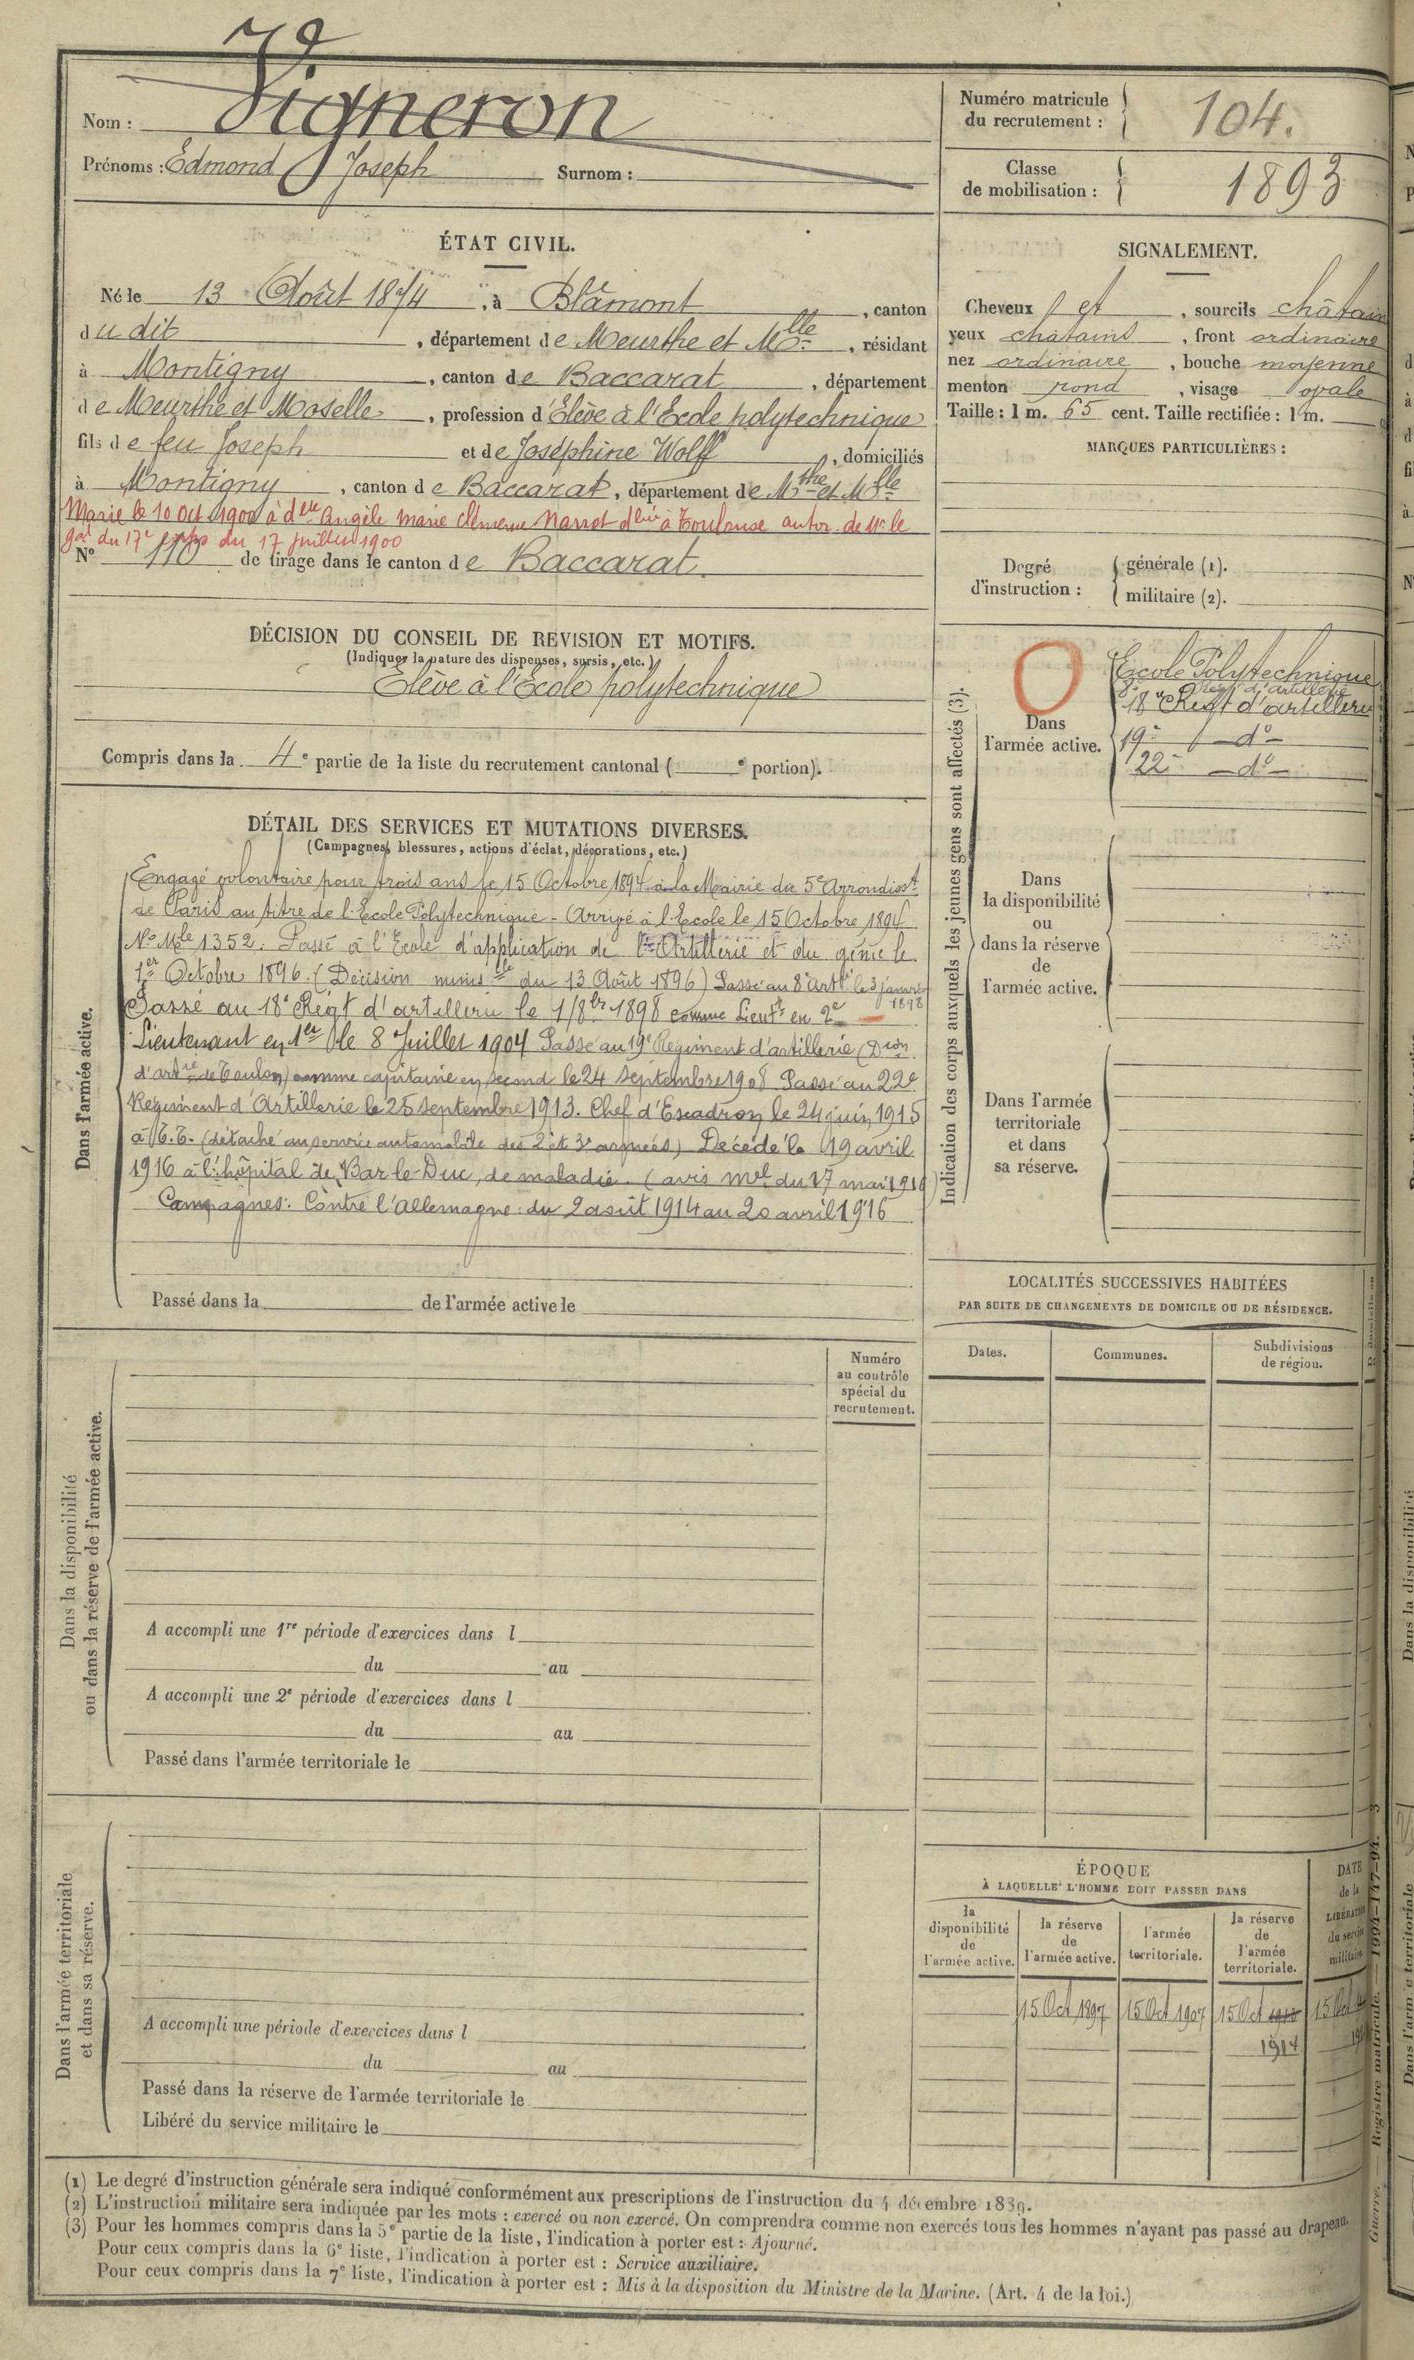 Nom : Vigneron
Prénoms : Edmond Joseph Surnom :
Numéro matricule du recrutement : 104.
Classe de mobilisation : 1893
ÉTAT CIVIL.
Né le 13 Août 1874, à Blâmont, canton
du dit, département de Meurthe et Mlle, résidant
à Montigny, canton de Baccarat, département
de Meurthe et Moselle, profession d'Elève à l'Ecole polytechnique
fils de feu Joseph et de Joséphine Wolff, domiciliés
à Montigny, canton de Baccarat, département de Mthe et Mlle
Marié le 10 Oct 1900 à delle Angèle Marie Clémence Narrot dliée à Toulouse autor. de Mr le
gal du 17e corps du 17 juillet 1900
No 110 de tirage dans le canton de Baccarat.
SIGNALEMENT.
Cheveux et, sourcils châtain
yeux châtains, front ordinaire
nez ordinaire, bouche moyenne
menton rond, visage ovale
Taille : 1 m. 65 cent. Taille rectifiée : 1 m.
MARQUES PARTICULIÈRES :
Degré d'instruction : générale (1).
militaire (2).
DÉCISION DU CONSEIL DE REVISION ET MOTIFS.
(Indiquer la nature des dispenses, sursis, etc.)
Elève à l'Ecole polytechnique
Compris dans la 4e partie de la liste du recrutement cantonal ( e portion).
DÉTAIL DES SERVICES ET MUTATIONS DIVERSES.
(Campagnes, blessures, actions d'éclat, décorations, etc.)
Dans l'armée active.
Engagé volontaire pour trois ans le 15 Octobre 1894 à la Mairie du 5e Arrondisst
de Paris au titre de l'Ecole Polytechnique - Arrivé à l'Ecole le 15 Octobre 1894
No Mle 1352. Passé à l'Ecole d'application de l'Artillerie et du génie le
1er Octobre 1896. (Décision minislle du 13 Août 1896) Passé au 8e Artie le 3 janvier 1898
Passé au 18e Régt d'artillerie le 1/8bre 1898 comme Lieut en 2e
Lieutenant en 1er le 8 Juillet 1904 Passé au 19e Régiment d'artillerie (Dion
d'artie de Toulon) comme capitaine en second le 24 septembre 1908 Passé au 22e
Régiment d'Artillerie le 25 septembre 1913. Chef d'Escadron le 24 juin 1915
à T.T. (détaché au service automobile des 2e et 3e armées) Décédé le 19 avril
1916 à l'hôpital de Bar-le-Duc, de maladie. (avis mel du 17 mai 1916)
Campagnes : Contre l'Allemagne : du 2 août 1914 au 20 avril 1916
Passé dans la de l'armée active le
Indication des corps auxquels les jeunes gens sont affectés (3).
Dans l'armée active.
Ecole Polytechnique
8e Régt d'artillerie
18e Régt d'artillerie
19e - do -
22e - do -
Dans la disponibilité ou dans la réserve de l'armée active.
Dans l'armée territoriale et dans sa réserve.
LOCALITÉS SUCCESSIVES HABITÉES
PAR SUITE DE CHANGEMENTS DE DOMICILE OU DE RÉSIDENCE.
Dates. Communes. Subdivisions de région.
Dans la disponibilité ou dans la réserve de l'armée active.
Numéro au contrôle spécial du recrutement.
A accompli une 1re période d'exercices dans l
du au
A accompli une 2e période d'exercices dans l
du au
Passé dans l'armée territoriale le
Dans l'armée territoriale et dans sa réserve.
A accompli une période d'exercices dans l
du au
Passé dans la réserve de l'armée territoriale le
Libéré du service militaire le
ÉPOQUE
À LAQUELLE L'HOMME DOIT PASSER DANS
la disponibilité de l'armée active.
la réserve de l'armée active.
l'armée territoriale.
la réserve de l'armée territoriale.
DATE de la LIBÉRATION du service militaire.
15 Oct 1897 15 Oct 1907 15 Oct 15 Oct
1914
(1) Le degré d'instruction générale sera indiqué conformément aux prescriptions de l'instruction du 4 décembre 1889.
(2) L'instruction militaire sera indiquée par les mots : exercé ou non exercé. On comprendra comme non exercés tous les hommes n'ayant pas passé au drapeau.
(3) Pour les hommes compris dans la 5e partie de la liste, l'indication à porter est : Ajourné.
Pour ceux compris dans la 6e liste, l'indication à porter est : Service auxiliaire.
Pour ceux compris dans la 7e liste, l'indication à porter est : Mis à la disposition du Ministre de la Marine. (Art. 4 de la loi.)